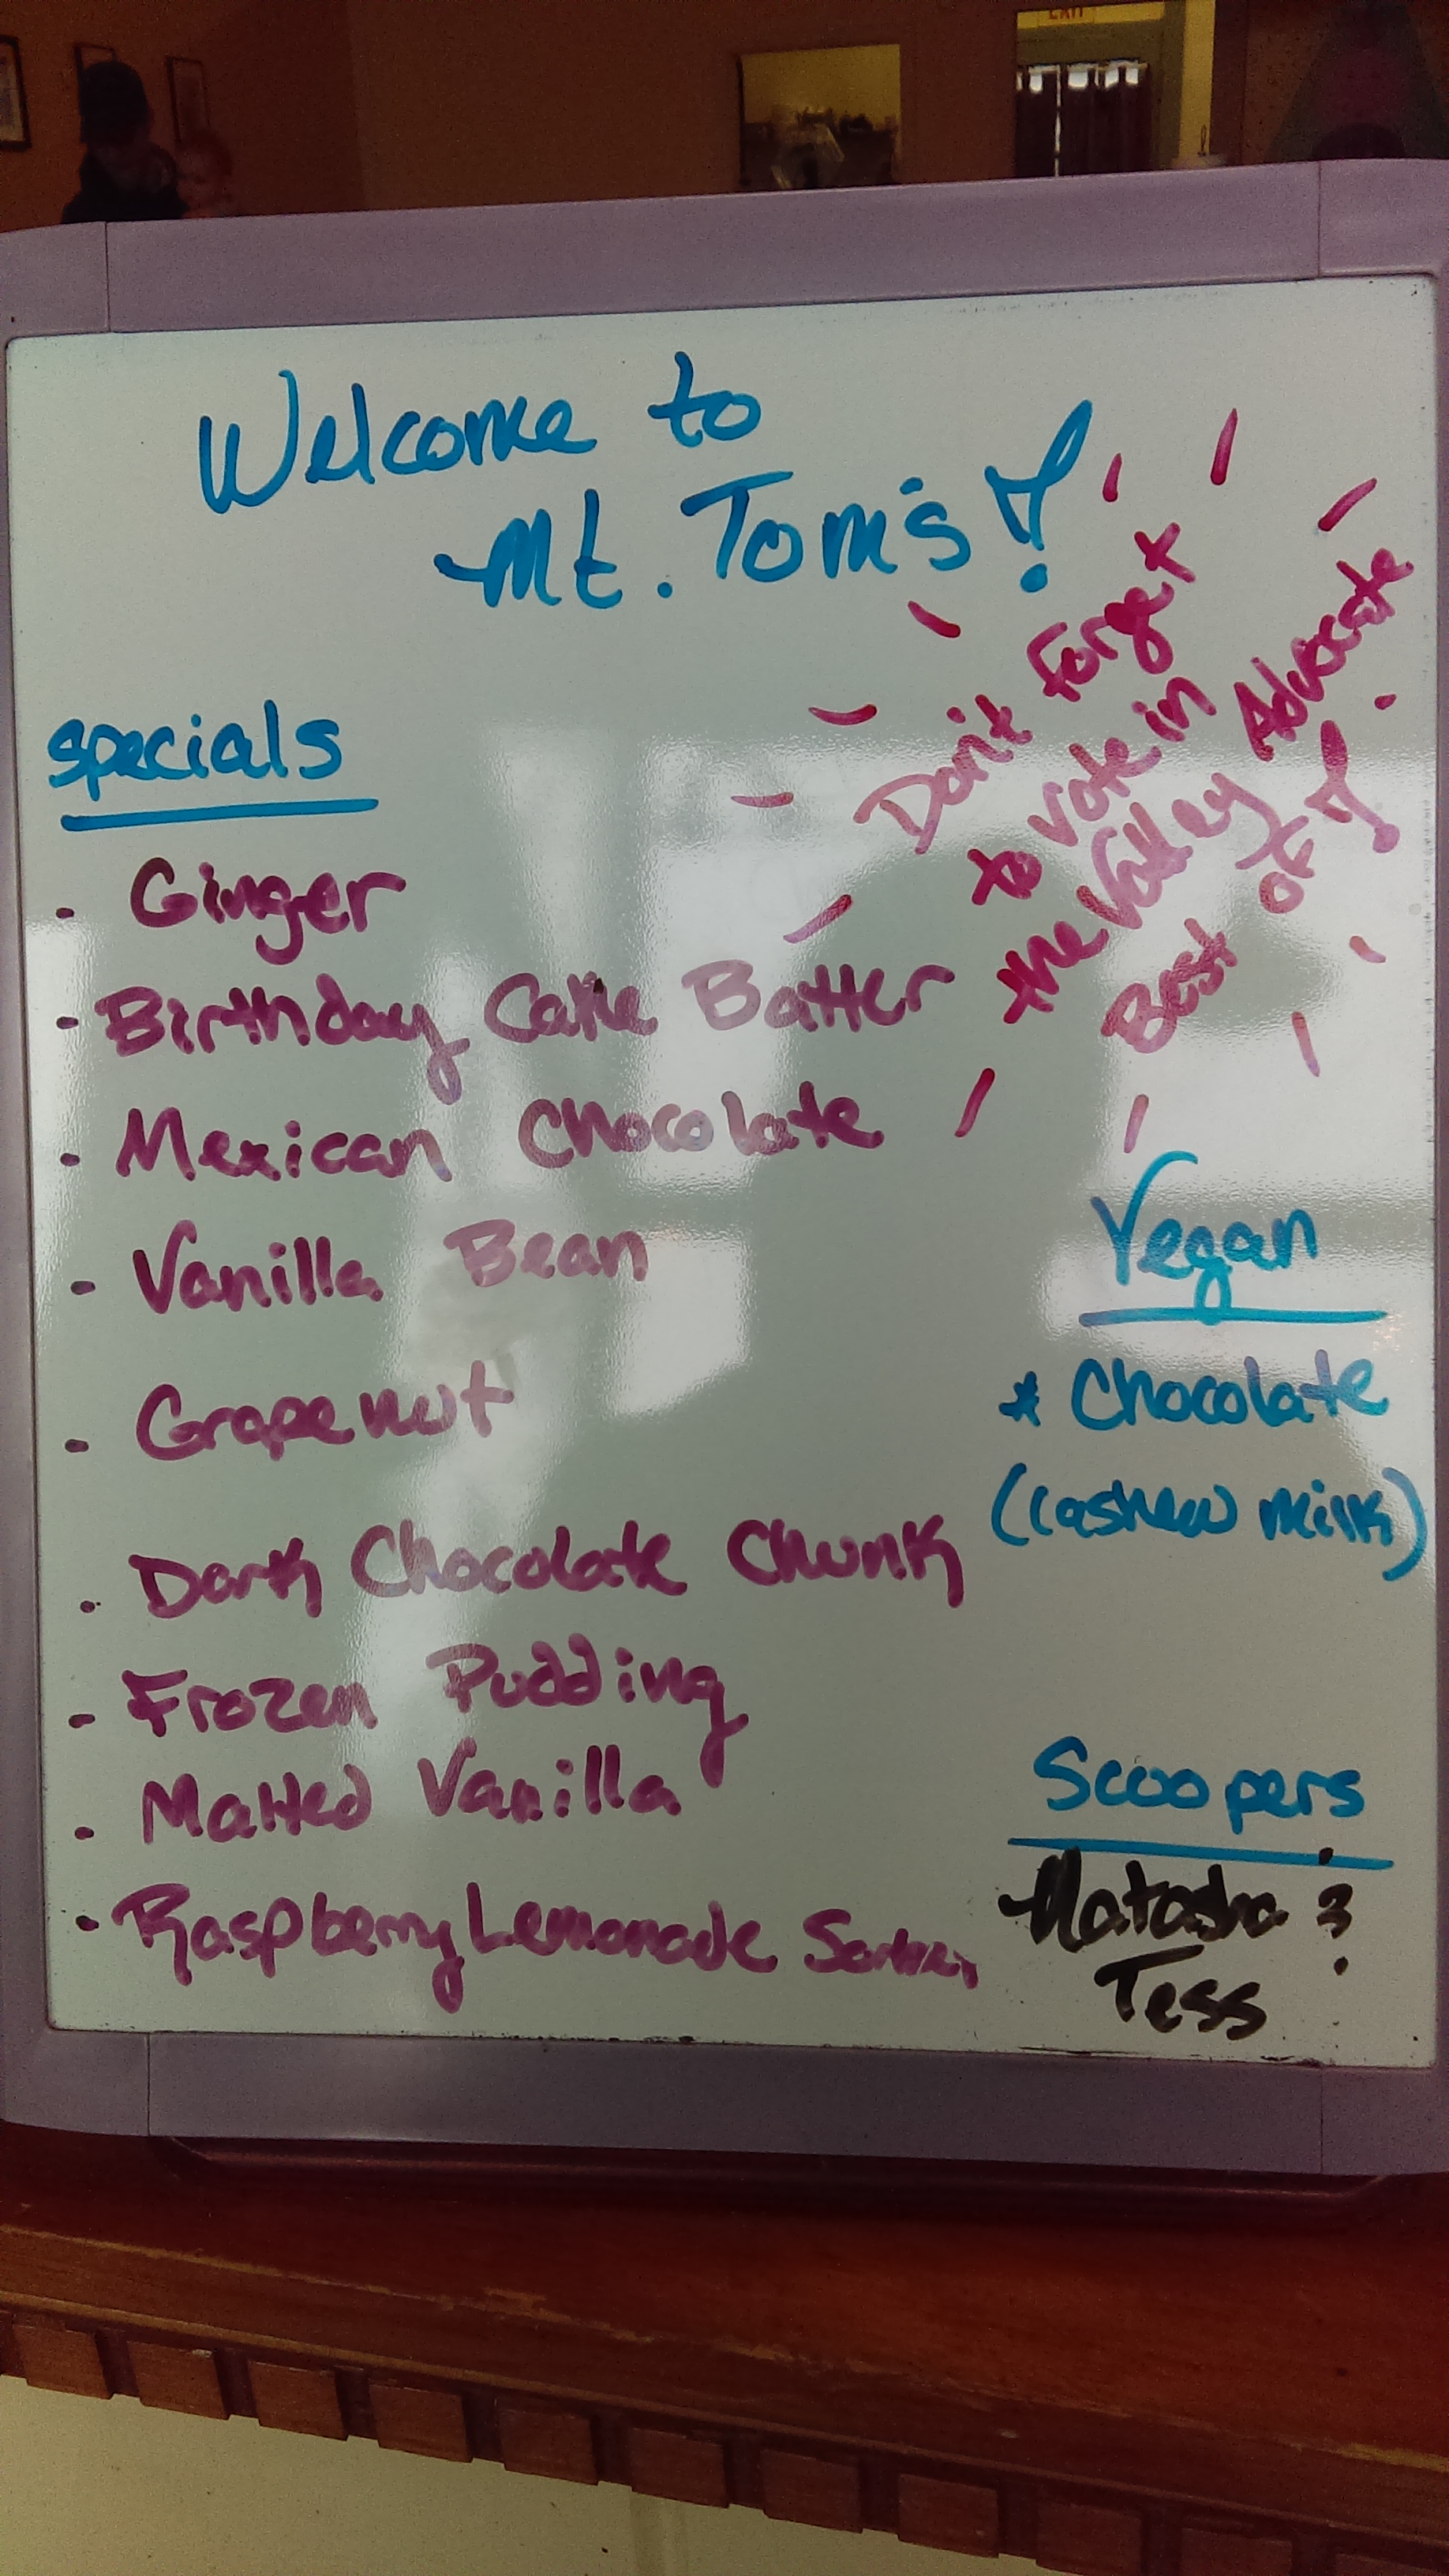 EXIT
Welcome to
Mt. Tom's!
Don't forget
to vote in
the Valley Advocate
Best of!
specials
- Ginger
- Birthday Cake Batter
- Mexican Chocolate
- Vanilla Bean
- Grapenut
- Dark Chocolate Chunk
- Frozen Pudding
- Malted Vanilla
- Raspberry Lemonade Sorbet
Vegan
* Chocolate
(cashew milk)
Scoopers
Natasha &
Tess